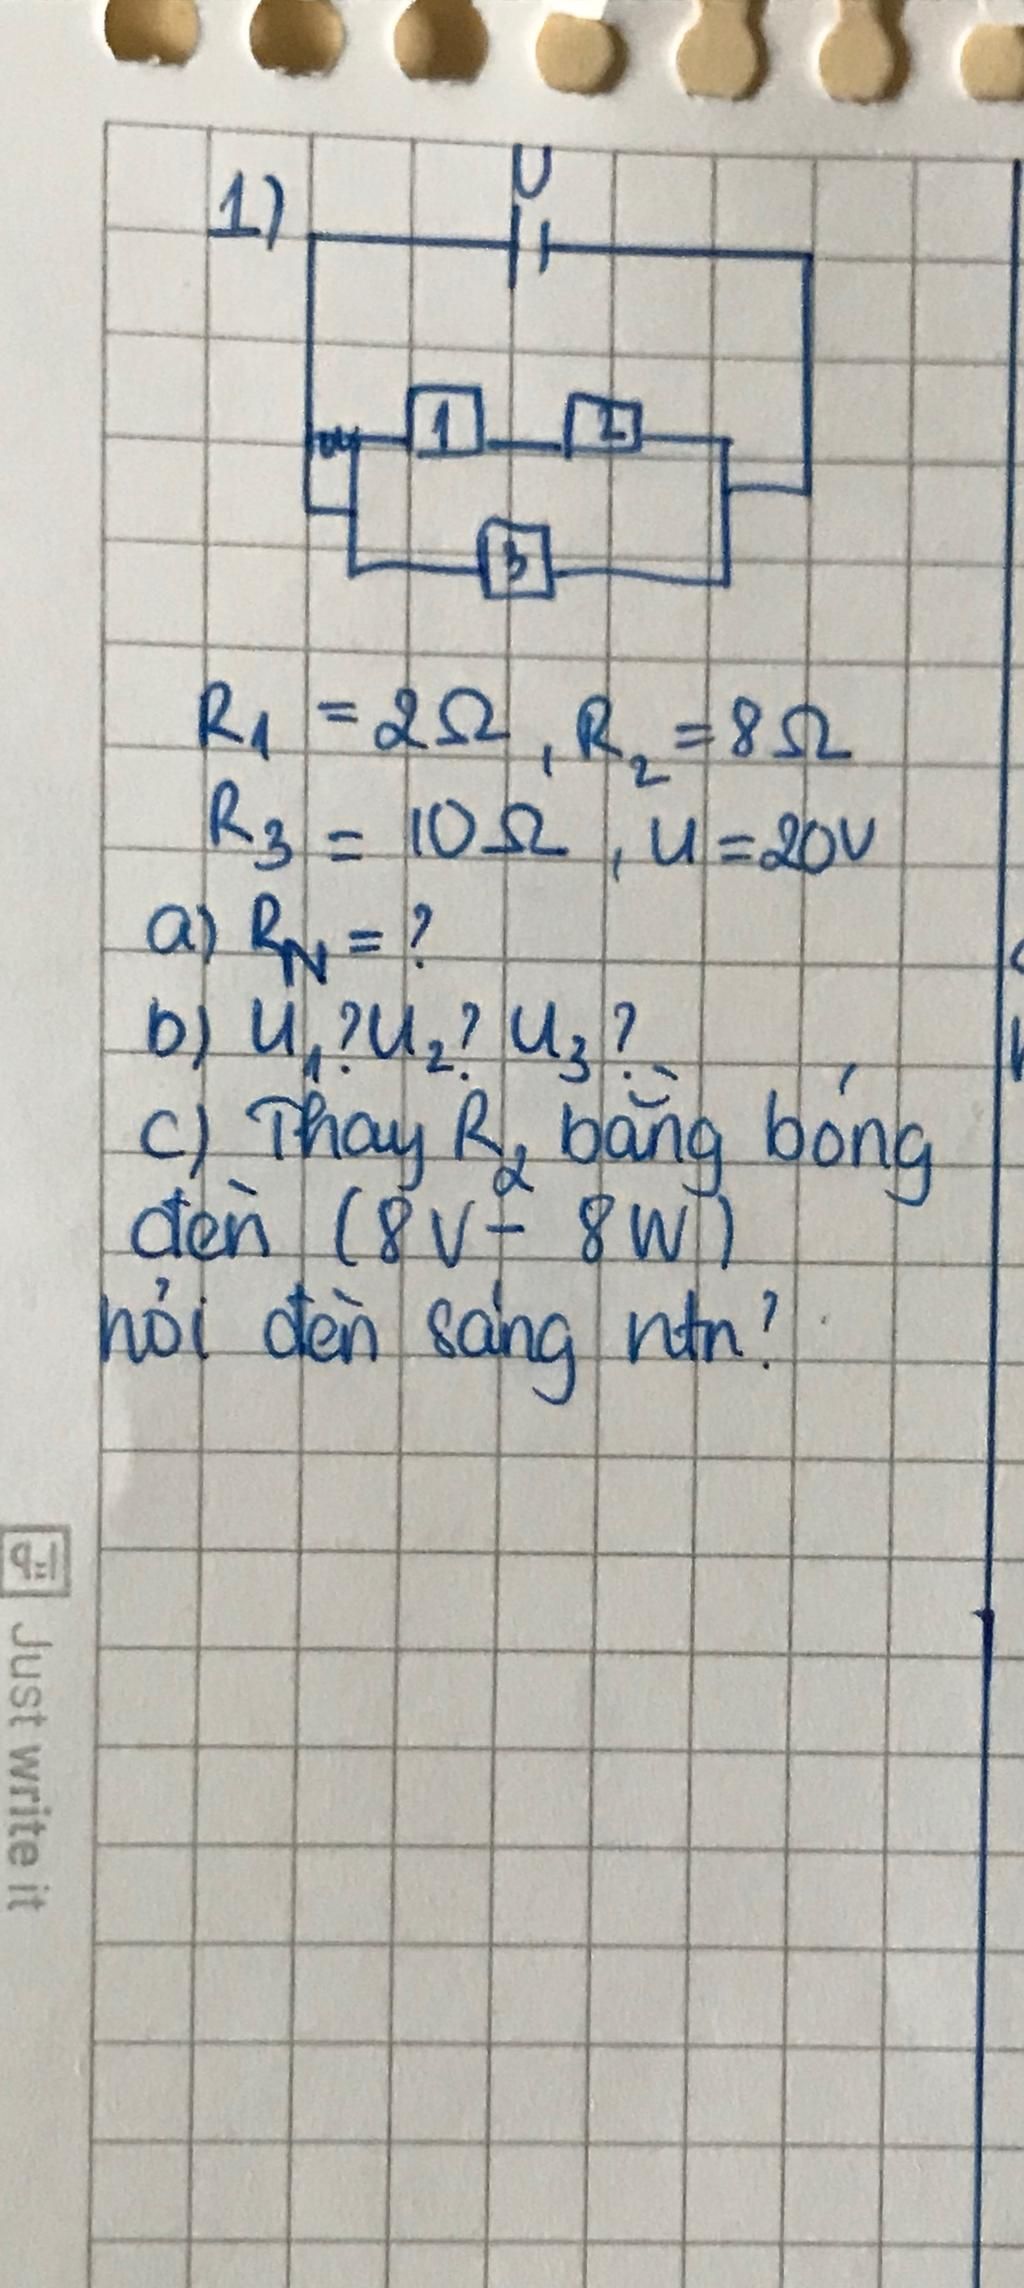 1)
U
1
2
3
R1 = 2Ω, R2 = 8Ω
R3 = 10Ω, U = 20V
a) RN = ?
b) U1? U2? U3?
c) Thay R2 bằng bóng
đèn (8V - 8W)
hỏi đèn sáng ntn?
Just write it